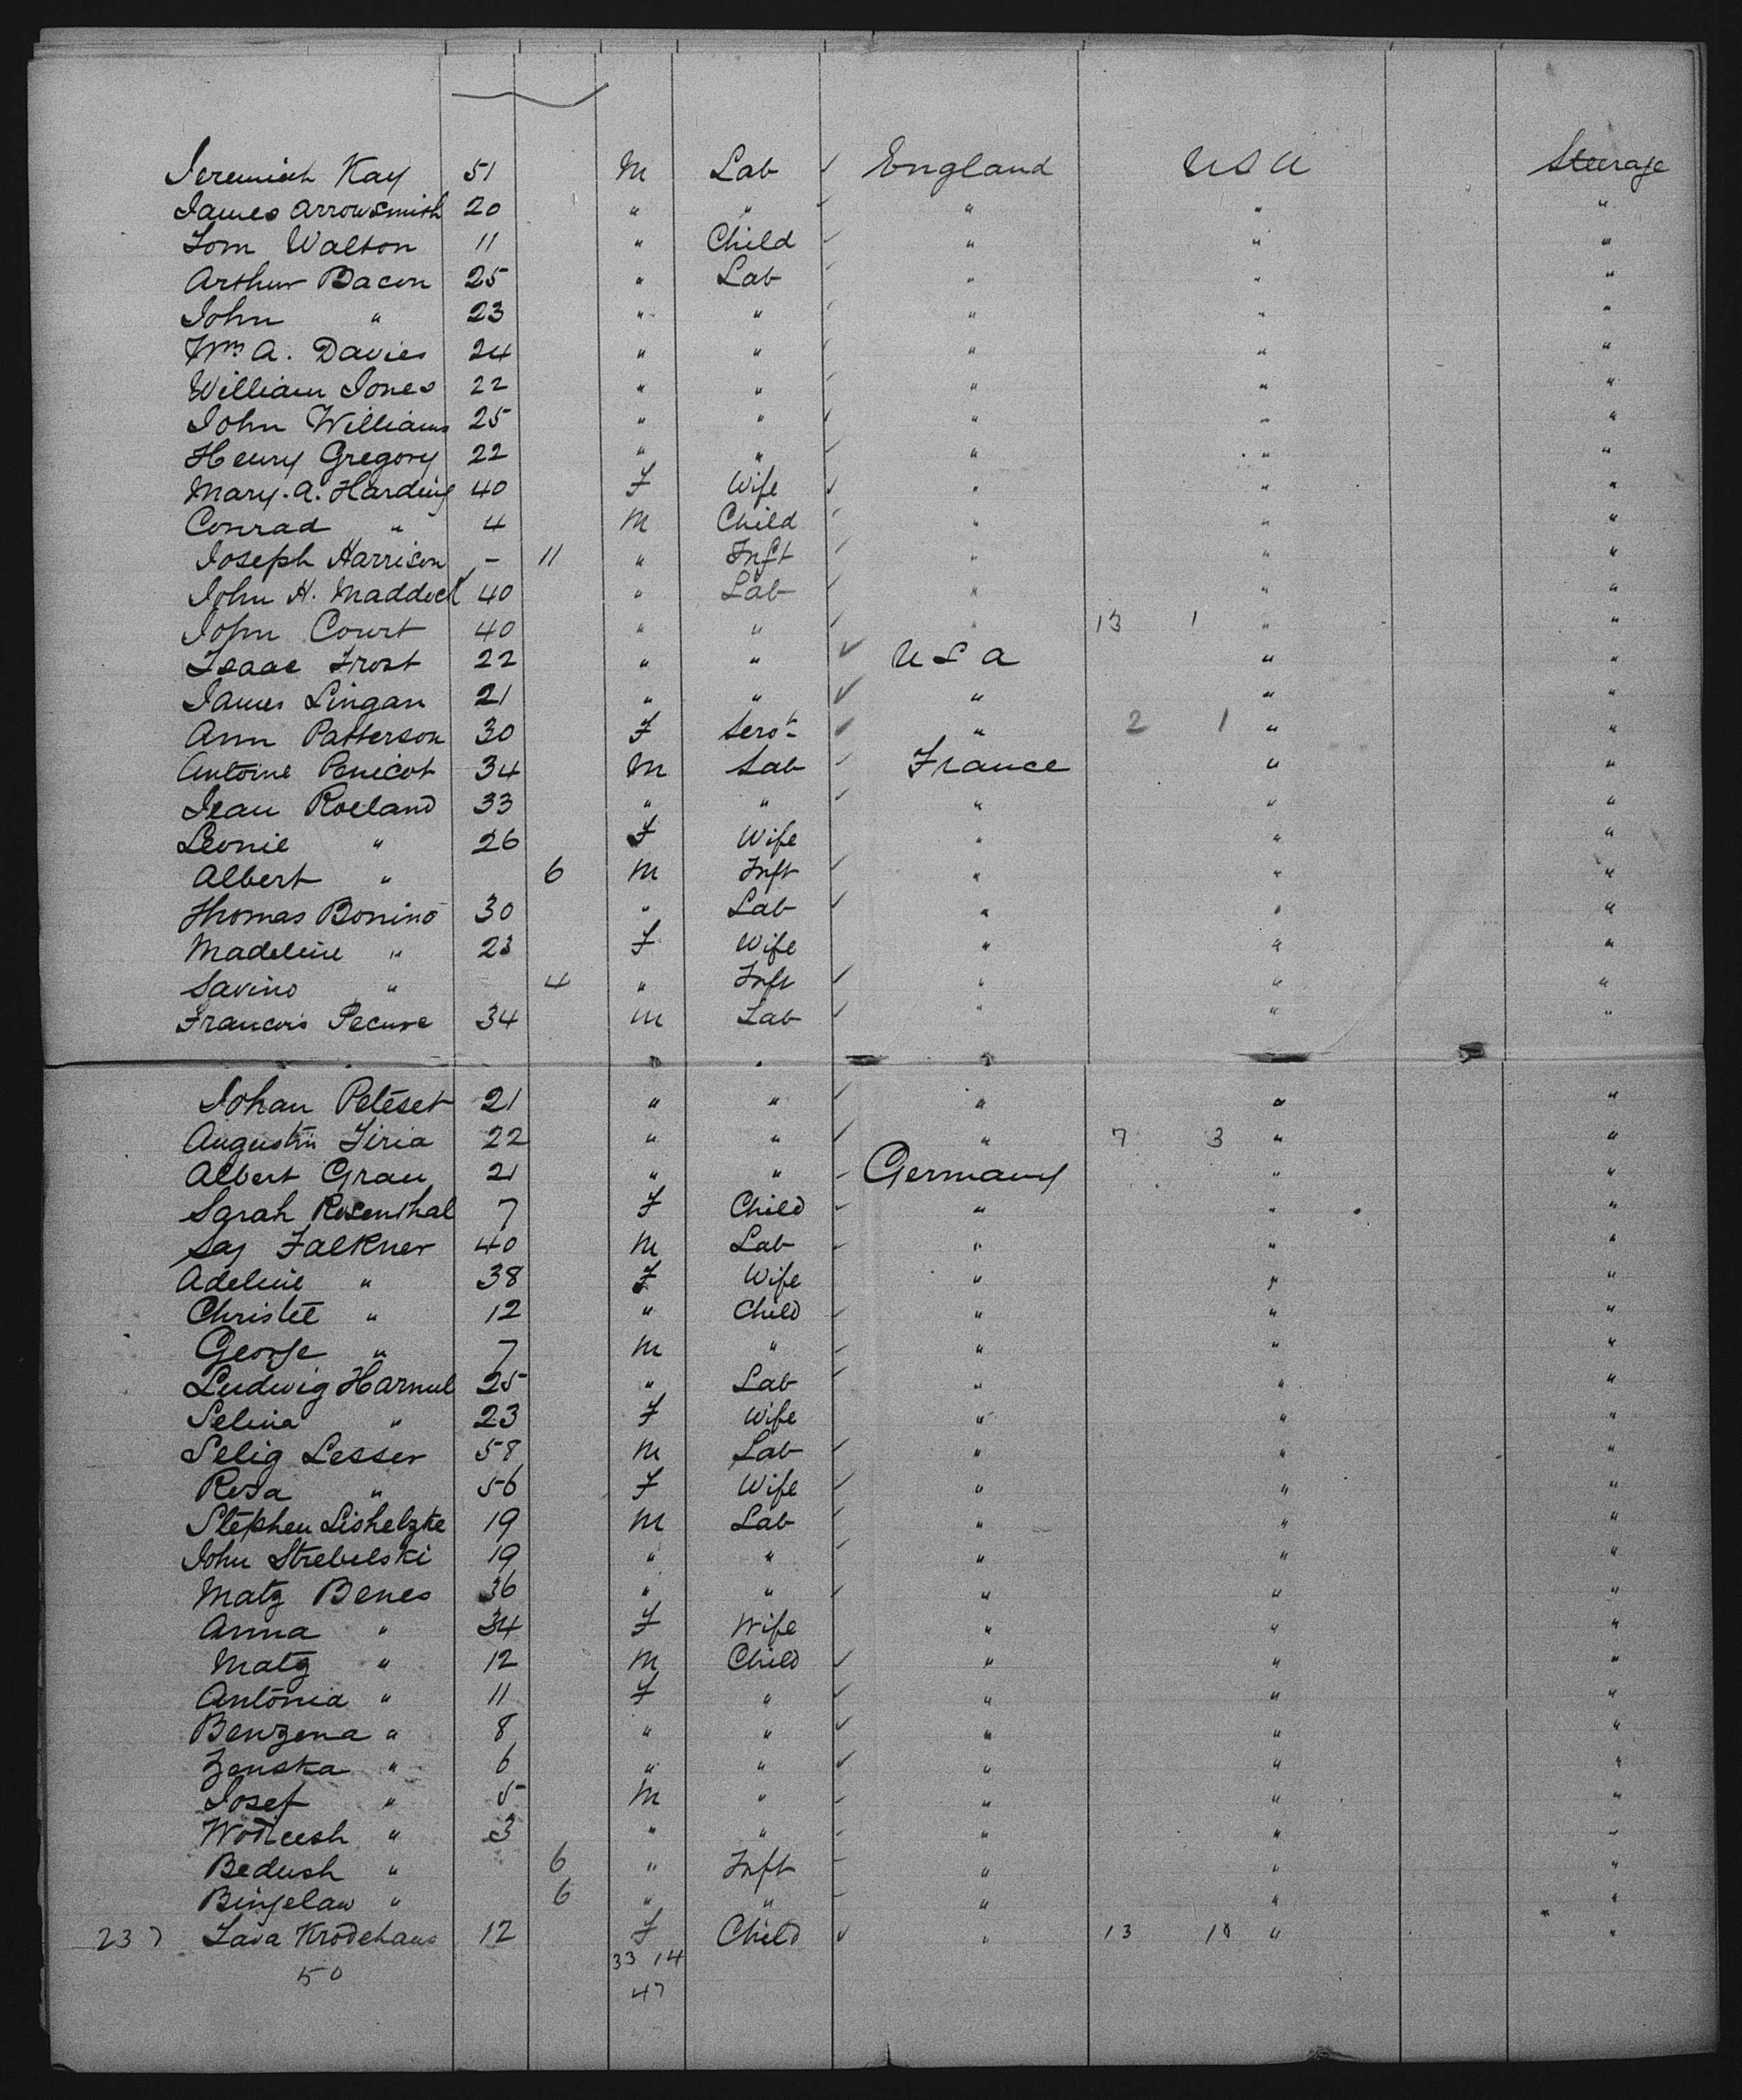 Jeremiah Kay 51 M Lab ✓ England USA Steerage
James Arrowsmith 20 " " ✓ " " "
Tom Walton 11 " Child ✓ " " "
Arthur Bacon 25 " Lab ✓ " " "
John " 23 " " ✓ " " "
Wm A. Davies 24 " " ✓ " " "
William Jones 22 " " ✓ " " "
John Williams 25 " " ✓ " " "
Henry Gregory 22 " " ✓ " " "
Mary. A. Harding 40 F Wife ✓ " " "
Conrad " 4 M Child ✓ " " "
Joseph Harrison - 11 " Inft ✓ " " "
John H. Maddock 40 " Lab ✓ " " "
John Court 40 " " ✓ " 13 1 " "
Isaac Frost 22 " " ✓ USA " "
James Lingan 21 " " ✓ " " "
Ann Patterson 30 F Servt ✓ " 2 1 " "
Antoine Penicot 34 M Lab ✓ France " "
Jean Roeland 33 " " ✓ " " "
Leonie " 26 F Wife " " "
Albert " 6 M Inft ✓ " " "
Thomas Bonino 30 " Lab ✓ " " "
Madeleine " 23 F Wife " " "
Savino " 4 " Inft ✓ " " "
Francois Pecure 34 M Lab ✓ " " "
Johan Peteset 21 " " ✓ " " "
Augustin Firia 22 " " ✓ " 7 3 " "
Albert Grau 21 " " ✓ Germany " "
Sarah Rosenthal 7 F Child ✓ " " "
Falkner 40 M Lab ✓ " " "
Adeline " 38 F Wife " " "
Christée " 12 " Child ✓ " " "
George " 7 M " ✓ " " "
Ludwig Harmul 25 " Lab ✓ " " "
Selina " 23 F Wife " " "
Selig Lesser 58 M Lab ✓ " " "
Rosa " 56 F Wife ✓ " " "
Stephen Lishelzke 19 M Lab ✓ " " "
John Strebelski 19 " " ✓ " " "
Matz Benes 36 " " ✓ " " "
Anna " 34 F Wife " " "
Matz " 12 M Child ✓ " " "
Antonia " 11 F " ✓ " " "
Benzena " 8 " " ✓ " " "
Zenska " 6 " " ✓ " " "
Josef " 5 M " ✓ " " "
" 3 " " ✓ " " "
Bedush " 6 " Inft ✓ " " "
Binjelaw " 6 " " ✓ " " "
237 12 F Child ✓ " 13 10 " "
50 33 14
47